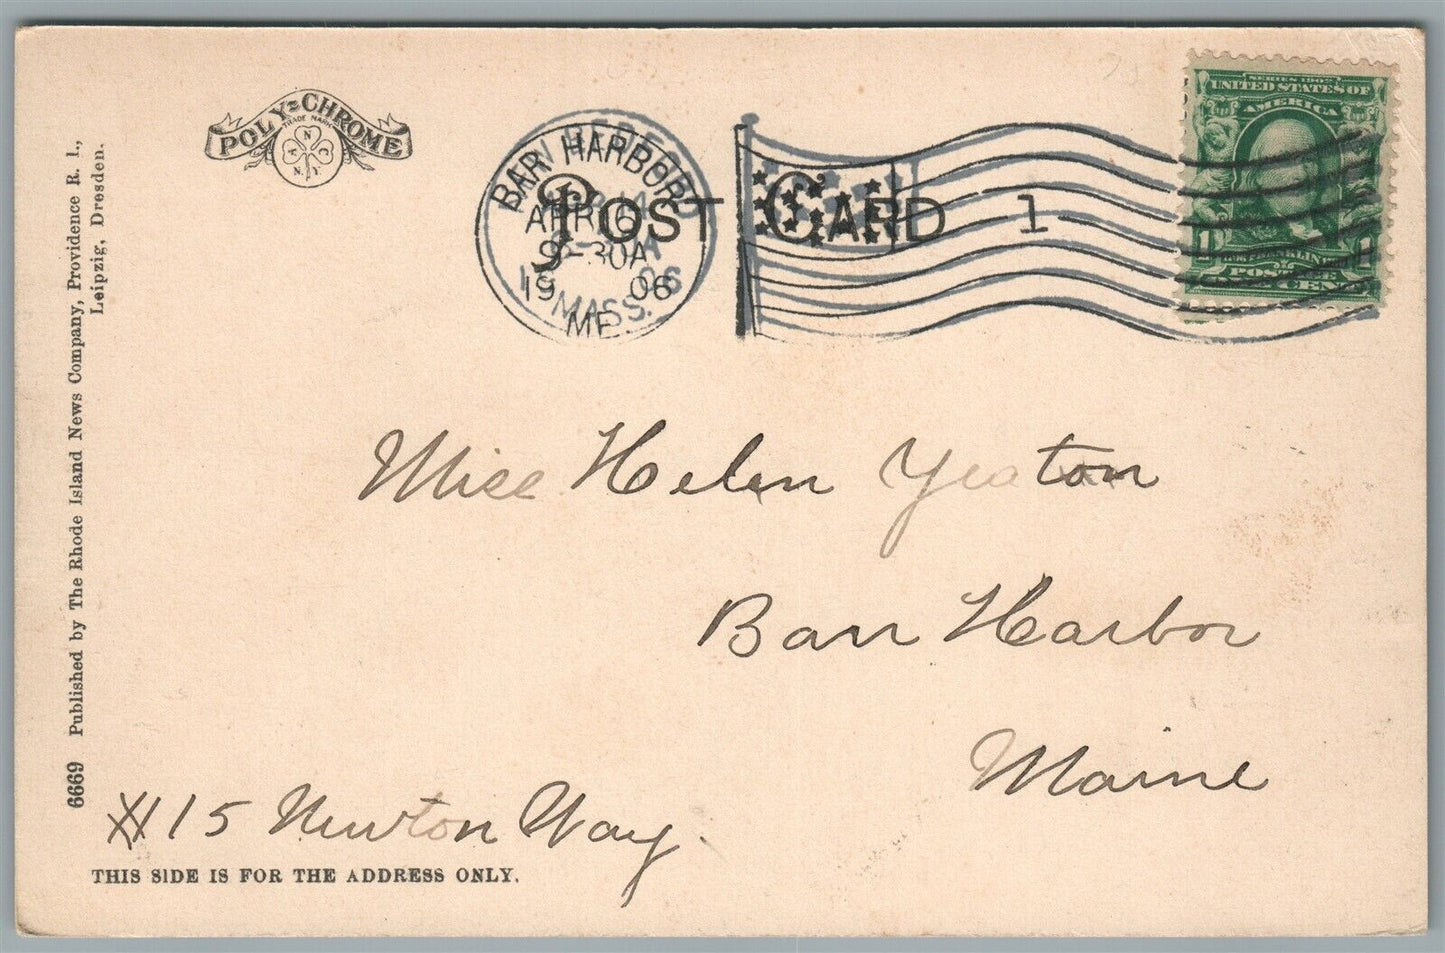 POLY-CHROME
TRADE MARK
N A C
N.Y.
BAR HARBOR
APR 16
9-30A
1906
ME.
MASS.
POST CARD
1
SERIES 1902
UNITED STATES OF
AMERICA
1 1
POSTAGE
ONE CENT
6669 Published by The Rhode Island News Company, Providence R. I.,
Leipzig, Dresden.
Miss Helen Yeaton
Barr Harbor
Maine
#15 Newton Way.
THIS SIDE IS FOR THE ADDRESS ONLY.